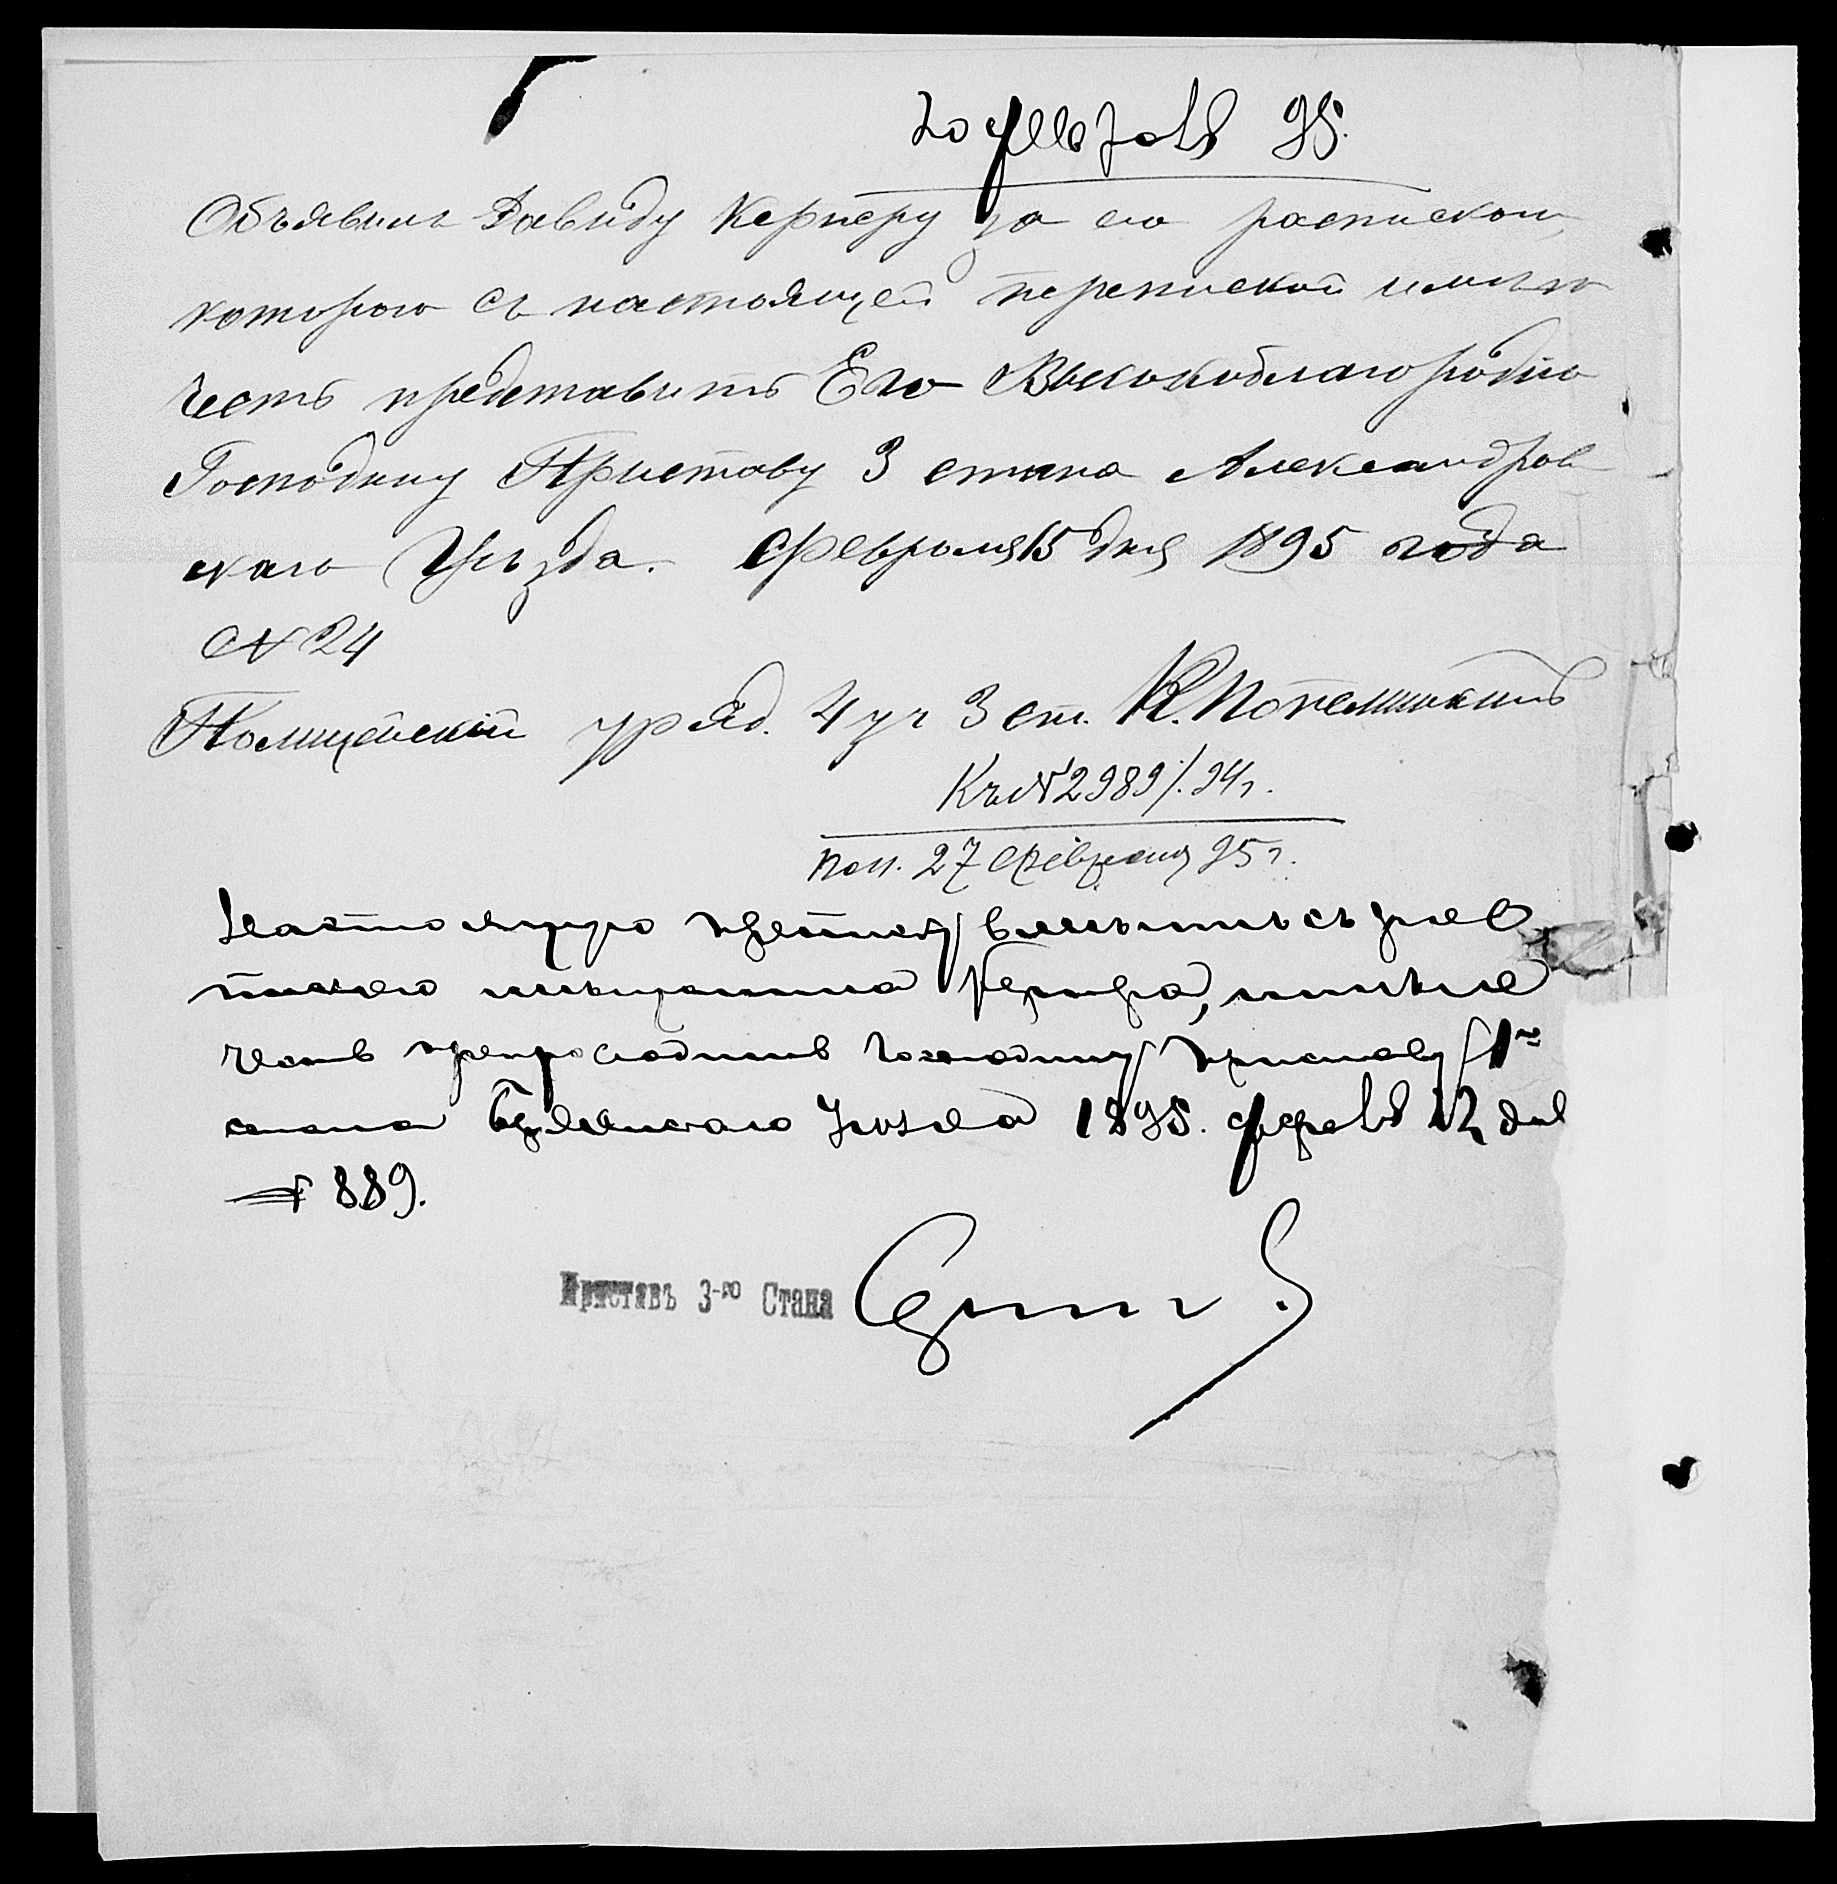 20 февраля 95.
Объявилъ Давиду Кернеру за его роспискою,
которою съ настоящей перепиской имѣю
честь представить Его Высокоблагородію
Господину Приставу 3 стана Александров
скаго Уѣзда. Февраля 15 дня 1895 года
№ 24
Полицейскій уряд. 4 уч 3 ст. К.
Къ № 2989/. 94 г.
Пол. 27 Февраля 95 г.
Настоящую вмѣстѣ съ рос
пискою мѣщанина Кернера, имѣю
честь препроводить Господину Приставу 1го
стана Уѣзда 1895. февраля 22 дня
№ 889.
Приставъ 3-го Стана